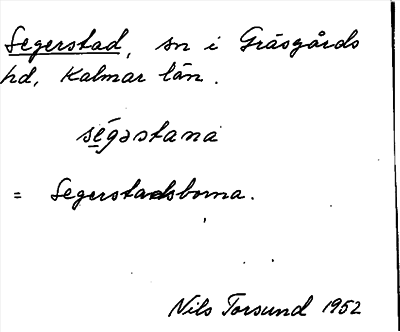 Segerstad, sn i Gräsgårds
hd, Kalmar län.
ségəstana
= Segerstadsborna.
Nils Torsund 1952